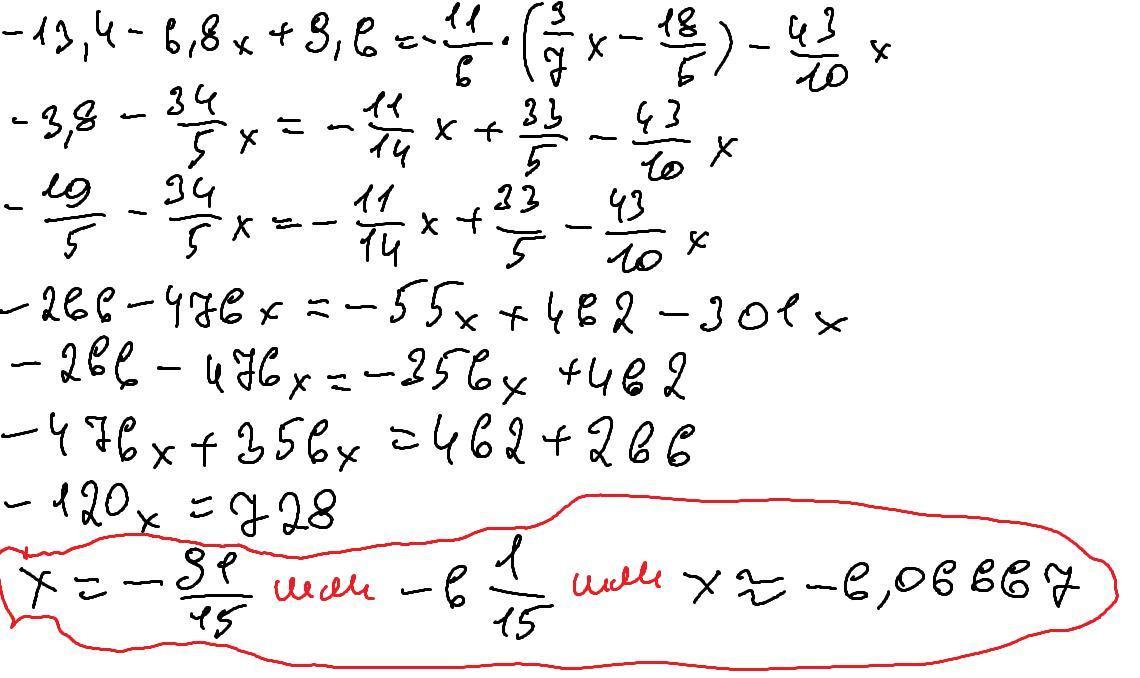 -13,4 - 6,8x + 9,6 = -11/6 · (3/7 x - 18/5) - 43/10 x
-3,8 - 34/5 x = -11/14 x + 33/5 - 43/10 x
-19/5 - 34/5 x = -11/14 x + 33/5 - 43/10 x
-266 - 476x = -55x + 462 - 301x
-266 - 476x = -356x + 462
-476x + 356x = 462 + 266
-120x = 728
x = -91/15 или -6 1/15 или x ≈ -6,06667